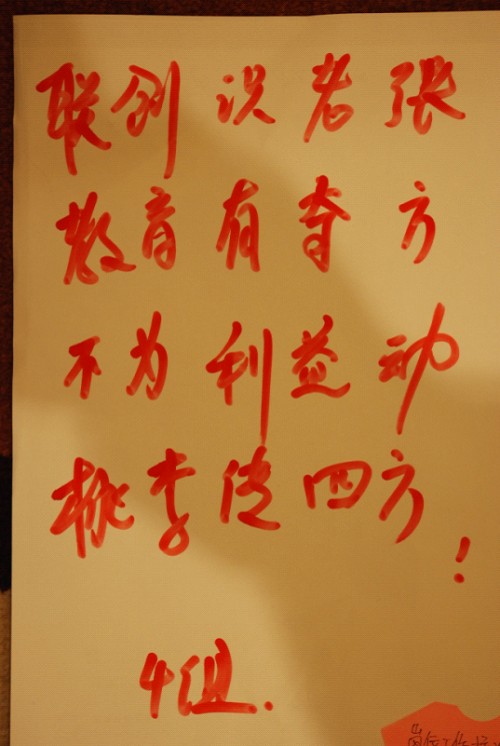 联创识老张
教育有奇方
不为利益动
桃李传四方!
4组.